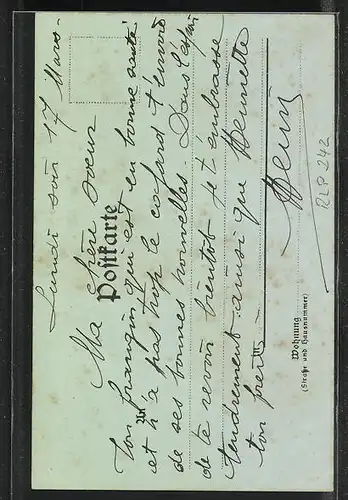 Lundi soir 17 Mars -
Ma chère soeur
ton françois qui est en bonne santé
et n'a pas trop le cafard t'envoie
de ses bonnes nouvelles. Dans l'espoir
de te revoir bientôt je t'embrasse
tendrement ainsi que Henriette
ton frère
Henri
Postkarte
W
Wohnung
(Straße und Hausnummer)
RLP 242